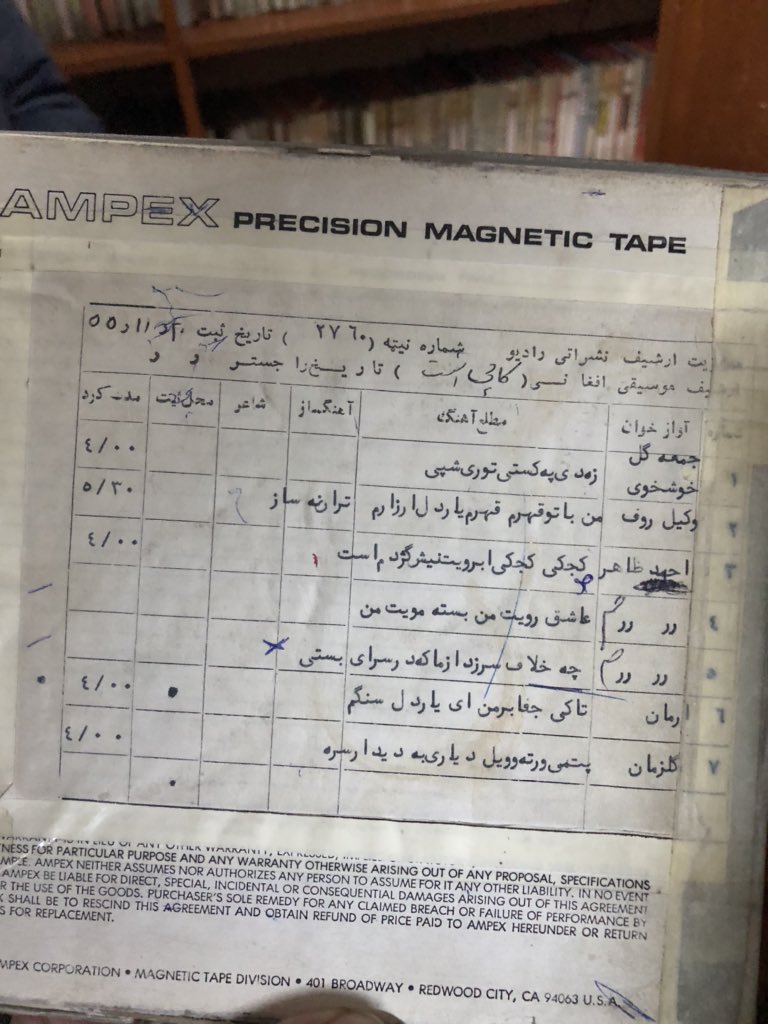 AMPEX PRECISION MAGNETIC TAPE
یت ارشیف نشراتی رادیو شماره نیته (۲۷۶۰) تاریخ ثبت
یف موسیقی افغا نسی( کاپی است ) تا ریخ را جستر
آواز خوان مطلع آهنگ آهنگساز شاعر محل ثبت مدت کرد
۱ جمعه گل خوشخوی زه دی په کستی توری شپی ٤/۰۰
۲ وکیل روف من با تو قهرم قهرم یار دل ازارم ترانه ساز ۵/۳۰
۳ احمد ظاهر کجکی کجکی ابرویت نیش گژدم است ٤/۰۰
٤ رر رر عاشق رویت من بسته مویت من
۵ رر رر چه خلاف سرزد ازما که در سرای بستی
۶ ارمان تاکی جفا برمن ای یار دل سنگم ٤/۰۰
۷ گلزمان پتمی ورته وویل د یاری به دیدار سره ٤/۰۰
NESS FOR PARTICULAR PURPOSE AND ANY WARRANTY OTHERWISE ARISING OUT OF ANY PROPOSAL, SPECIFICATIONS
MPLE. AMPEX NEITHER ASSUMES NOR AUTHORIZES ANY PERSON TO ASSUME FOR IT ANY OTHER LIABILITY. IN NO EVENT
AMPEX BE LIABLE FOR DIRECT, SPECIAL, INCIDENTAL OR CONSEQUENTIAL DAMAGES ARISING OUT OF THIS AGREEMENT
R THE USE OF THE GOODS. PURCHASER'S SOLE REMEDY FOR ANY CLAIMED BREACH OR FAILURE OF PERFORMANCE BY
X SHALL BE TO RESCIND THIS AGREEMENT AND OBTAIN REFUND OF PRICE PAID TO AMPEX HEREUNDER OR RETURN
S FOR REPLACEMENT.
MPEX CORPORATION • MAGNETIC TAPE DIVISION • 401 BROADWAY • REDWOOD CITY, CA 94063 U.S.A.